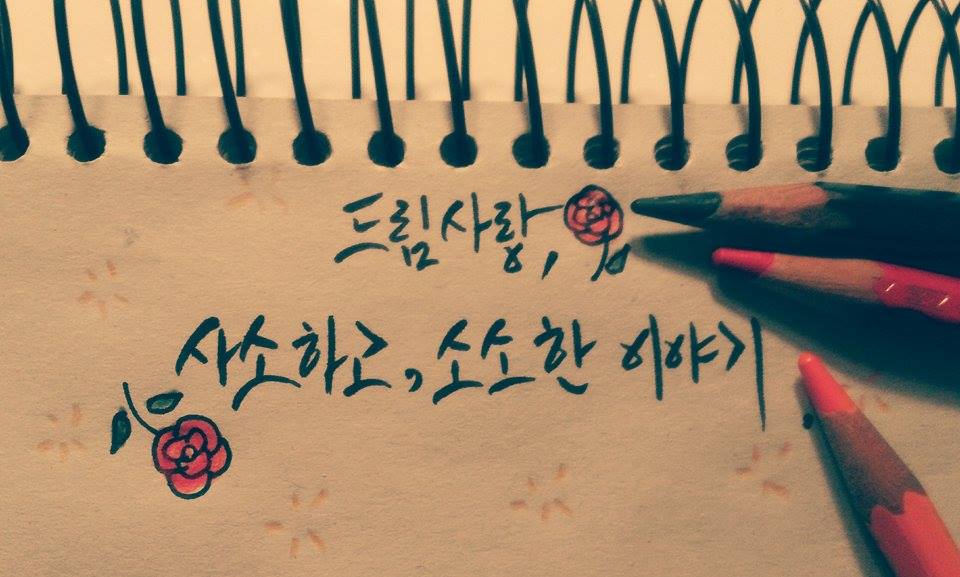 드림사랑,
사소하고, 소소한 이야기.